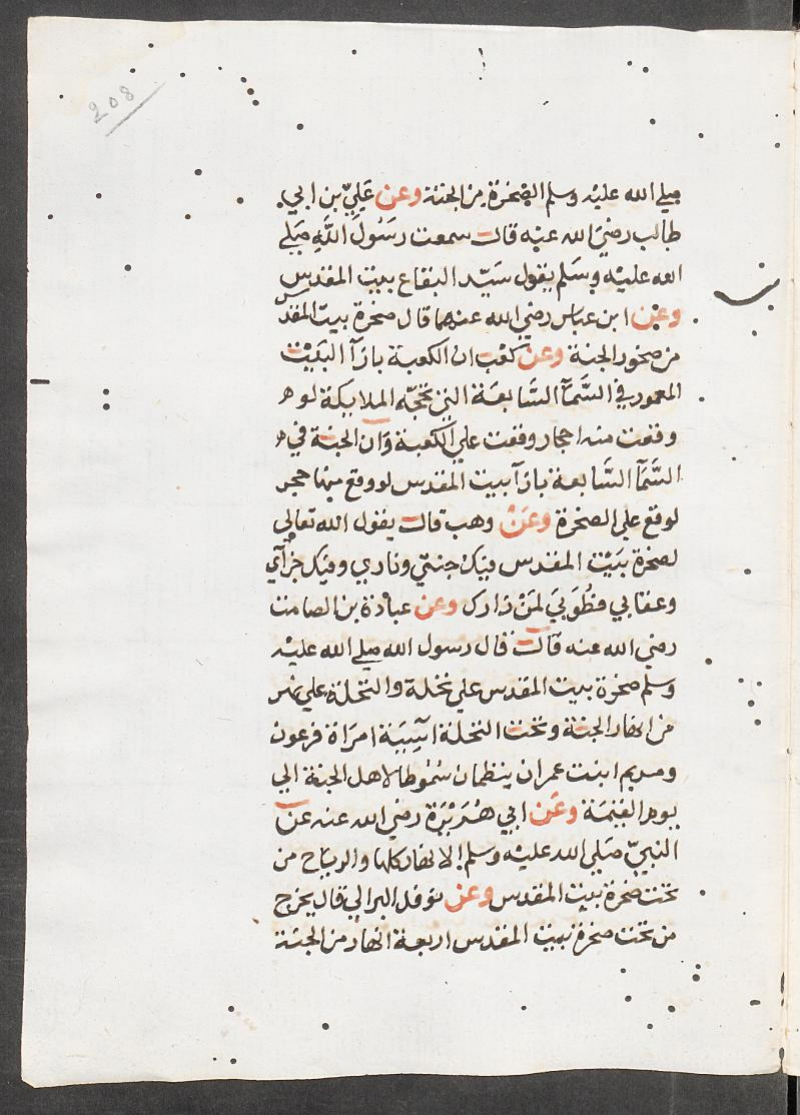 208
صلى الله عليه وسلم الصخرة من الجنة وعن علي بن ابي
طالب رضي الله عنه قال سمعت رسول الله صلى
الله عليه وسلم يقول سيد البقاع بيت المقدس
وعن ابن عباس رضي الله عنهما قال صخرة بيت المقدس
من صخور الجنة وعن كعب ان الكعبة بازآ البيت
المعمور في السمآ السابعة التي تحجه الملايكة لو
وقعت منه احجار وقعت على الكعبة وان الجنة في
السمآ السابعة بازآ بيت المقدس لو وقع منها حجر
لوقع على الصخرة وعن وهب قال يقول الله تعالى
لصخرة بيت المقدس فيك جنتي وناري وفيك جزآي
وعقابي فطوبي لمن زارك وعن عبادة بن الصامت
رضي الله عنه قال قال رسول الله صلى الله عليه
وسلم صخرة بيت المقدس على نخلة والنخلة على نهر
من انهار الجنة وتحت النخلة آسية امراة فرعون
ومريم ابنت عمران ينظمان سموطا لاهل الجنة الى
يوم القيمة وعن ابي هريرة رضي الله عنه عن
النبي صلى الله عليه وسلم الانهار كلها والرياح من
تحت صخرة بيت المقدس وعن نوف البرالي قال يخرج
من تحت صخرة بيت المقدس اربعة انهار من الجنة